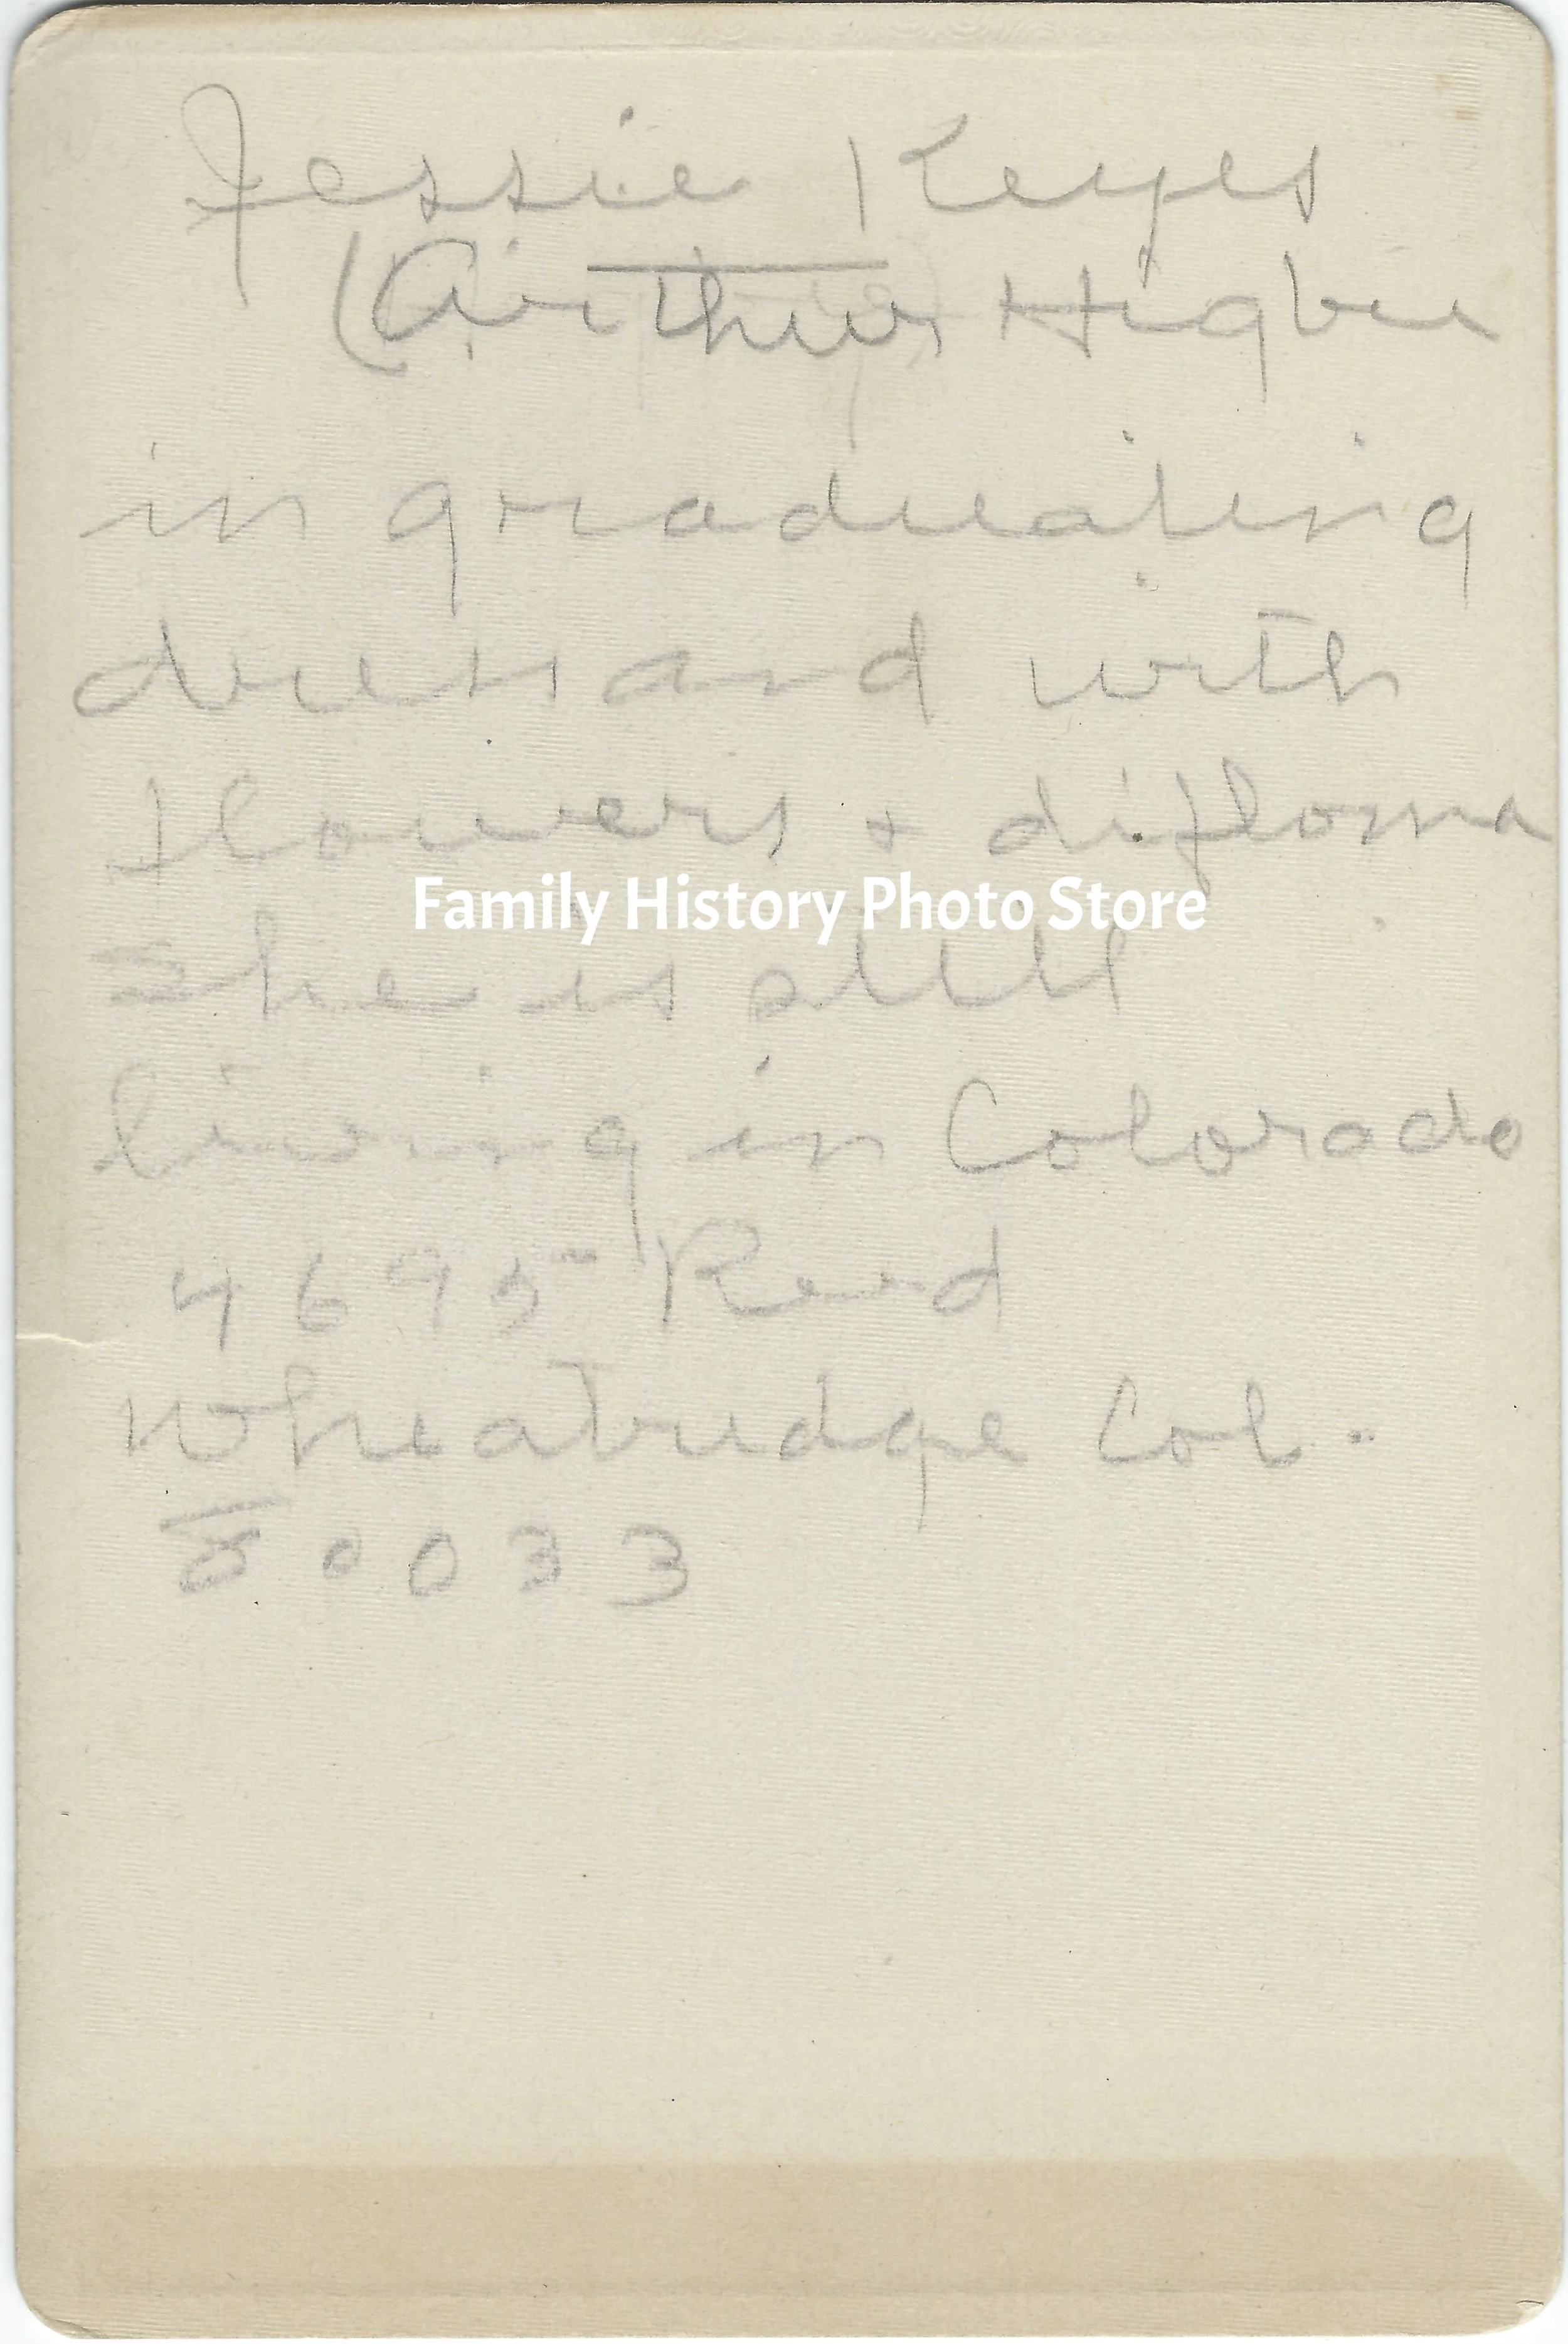 Jessie Keyes
(Arthur Higbie
in graduating
dress and with
flowers + diploma
Family History Photo Store
She is still
living in Colorado
4695 Reed
Wheatridge Col.
80033